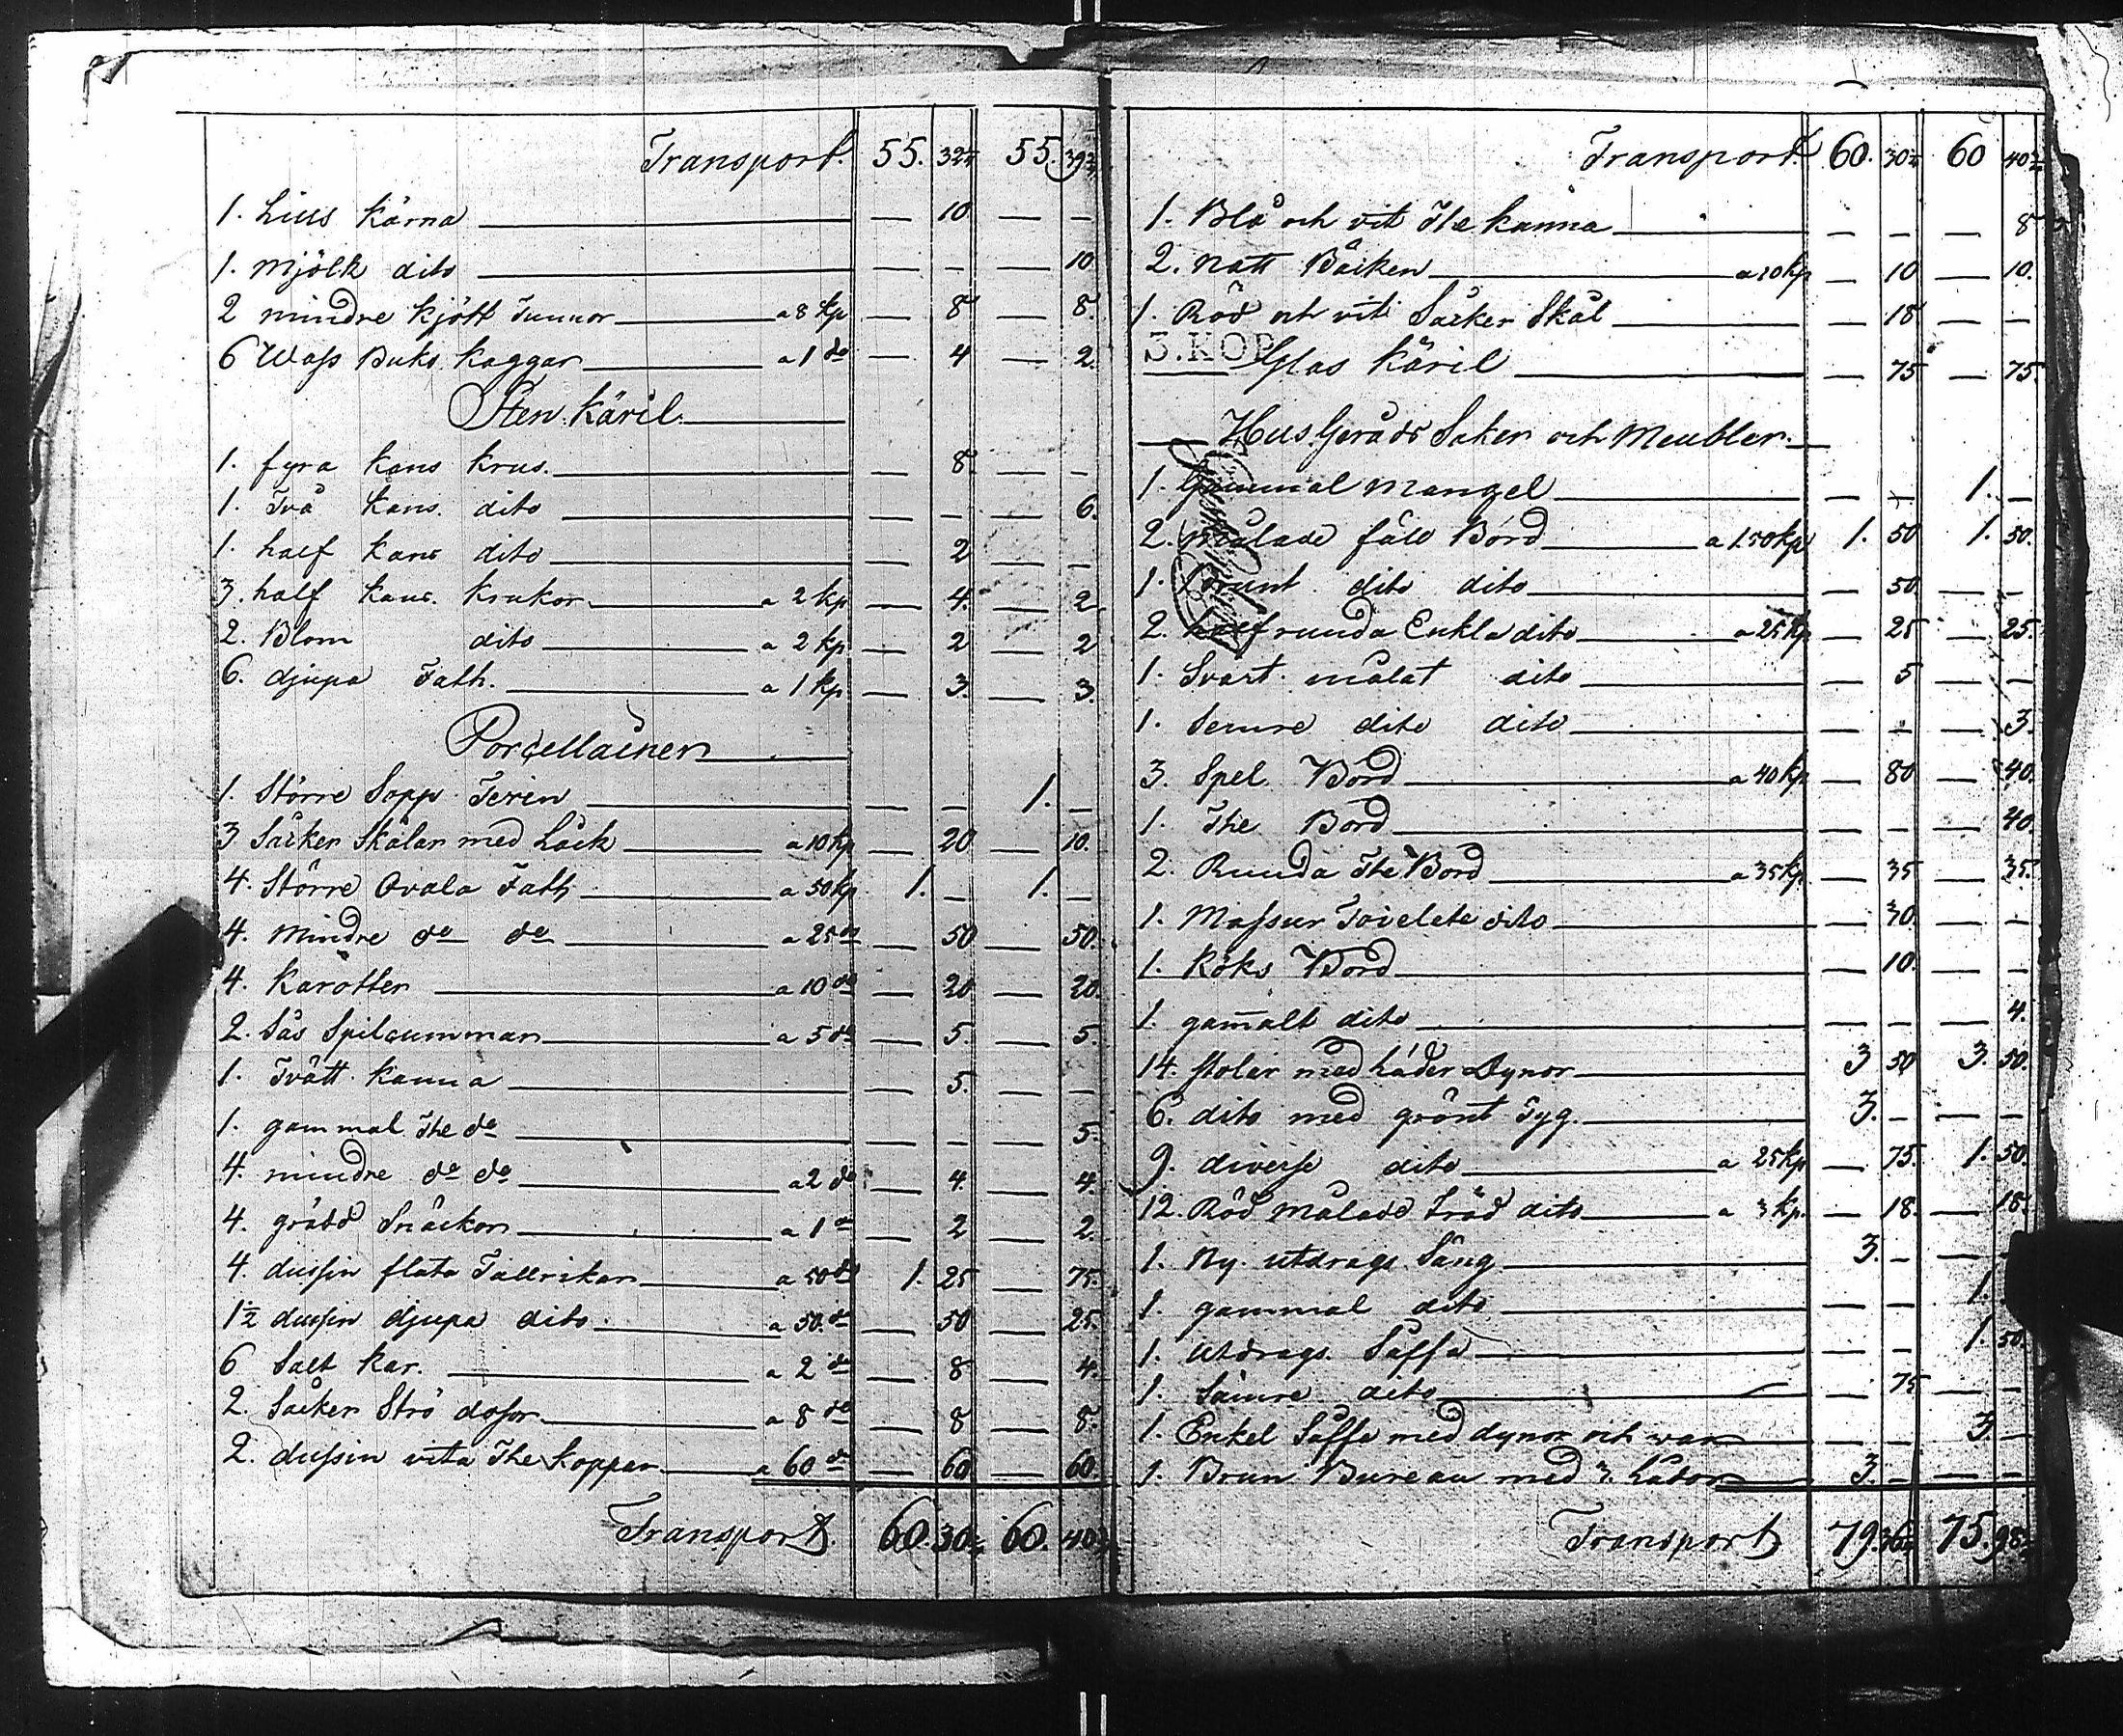 Transport. 55. 32¾ 55. 39¾
1. Lius kärna — 10 — –
1. Mjölk dito — – — 10
2 mindre kjött Tunnor a 8 kp — 8 — 8.
6 Wass Buks kaggar a 1 do — 4 — 2.
Sten käril
1. fyra kans krus. — 8. — –
1. Två kans. dito — – — 6.
1. half kans dito — 2 — –
3. half kans. krukor a 2 kp — 4. — 2
2. Blom dito a 2 kp — 2 — 2
6. djupa Fath. a 1 kp — 3. — 3.
Porcellainer
1. Större Sopp Terin — – 1. –
3 Säcker Skålar med Låck a 10 kp — 20 — 10.
4. Större Ovala Fath a 50 kp 1. – 1. –
4. Mindre do do a 25 do — 50 — 50.
4. Karotter a 10 do — 20 — 20.
2. Sås Spilcummar a 5 do — 5. — 5.
1. Tvätt kanna — 5. — –
1. gammal The do — – — 5.
4. mindre do do a 2 do — 4. — 4.
4. grädd Snäckor a 1 do — 2 — 2.
4. dussin flata Tallrikar a 50 do 1. 25 75.
1½ dussin djupa dito a 50. do — 50 — 25.
6 Salt kar. a 2 do — 8 — 4.
2. Säcker Strö dosor a 8 do — 8 — 8.
2. dussin vita The koppar a 60 do — 60 — 60.
Transport. 60. 30¾ 60. 40¾
Transport 60. 30¾ 60 40¾
1. Blå och vit The kanna — – — 8
2. natt Bäcken a 10 kp — 10 — 10.
1. Röd och vit Säcker Skål — 18 — –
3. KOP
Glas käril — 75 — 75.
Hus Geråds Saker och Meubler.
1. Gammal Mangel — – 1. –
2. målade fäll Bord a 1.50 kp 1. 50 1. 50.
1. dito dito — 50. — –
2. half runda Enkla dito a 25 kp — 25 — 25.
1. Svart målat dito — 5 — –
1. Semre dito dito — – — 3.
3. Spel Bord a 40 kp — 80 — 40.
1. The Bord — – — 40.
2. Runda The Bord a 35 kp — 35 — 35.
1. Massur Toielete dito — 30. — –
1. Köks Bord — 10. — –
1. gam̄alt dito — – — 4.
14. Stolar med Läder Dynor 3 50 3. 50.
6. dito med grönt Tyg. 3. – — –
9. diverse dito a 25 kp — 75. 1. 50.
12. Röd målade Träd dito a 3 kp. — 18. — 18.
1. Ny utdrags Säng 3. – —
1. gammal dito — – 1.
1. Utdrags. Saffa — – 1. 50.
1. Sämre dito — 75 — –
1. Enkel Saffa med dynor och war — – 3. –
1. Brun Bureau med 3. Lådor 3. – — –
Transport 79. 36¾ 75. 98¾